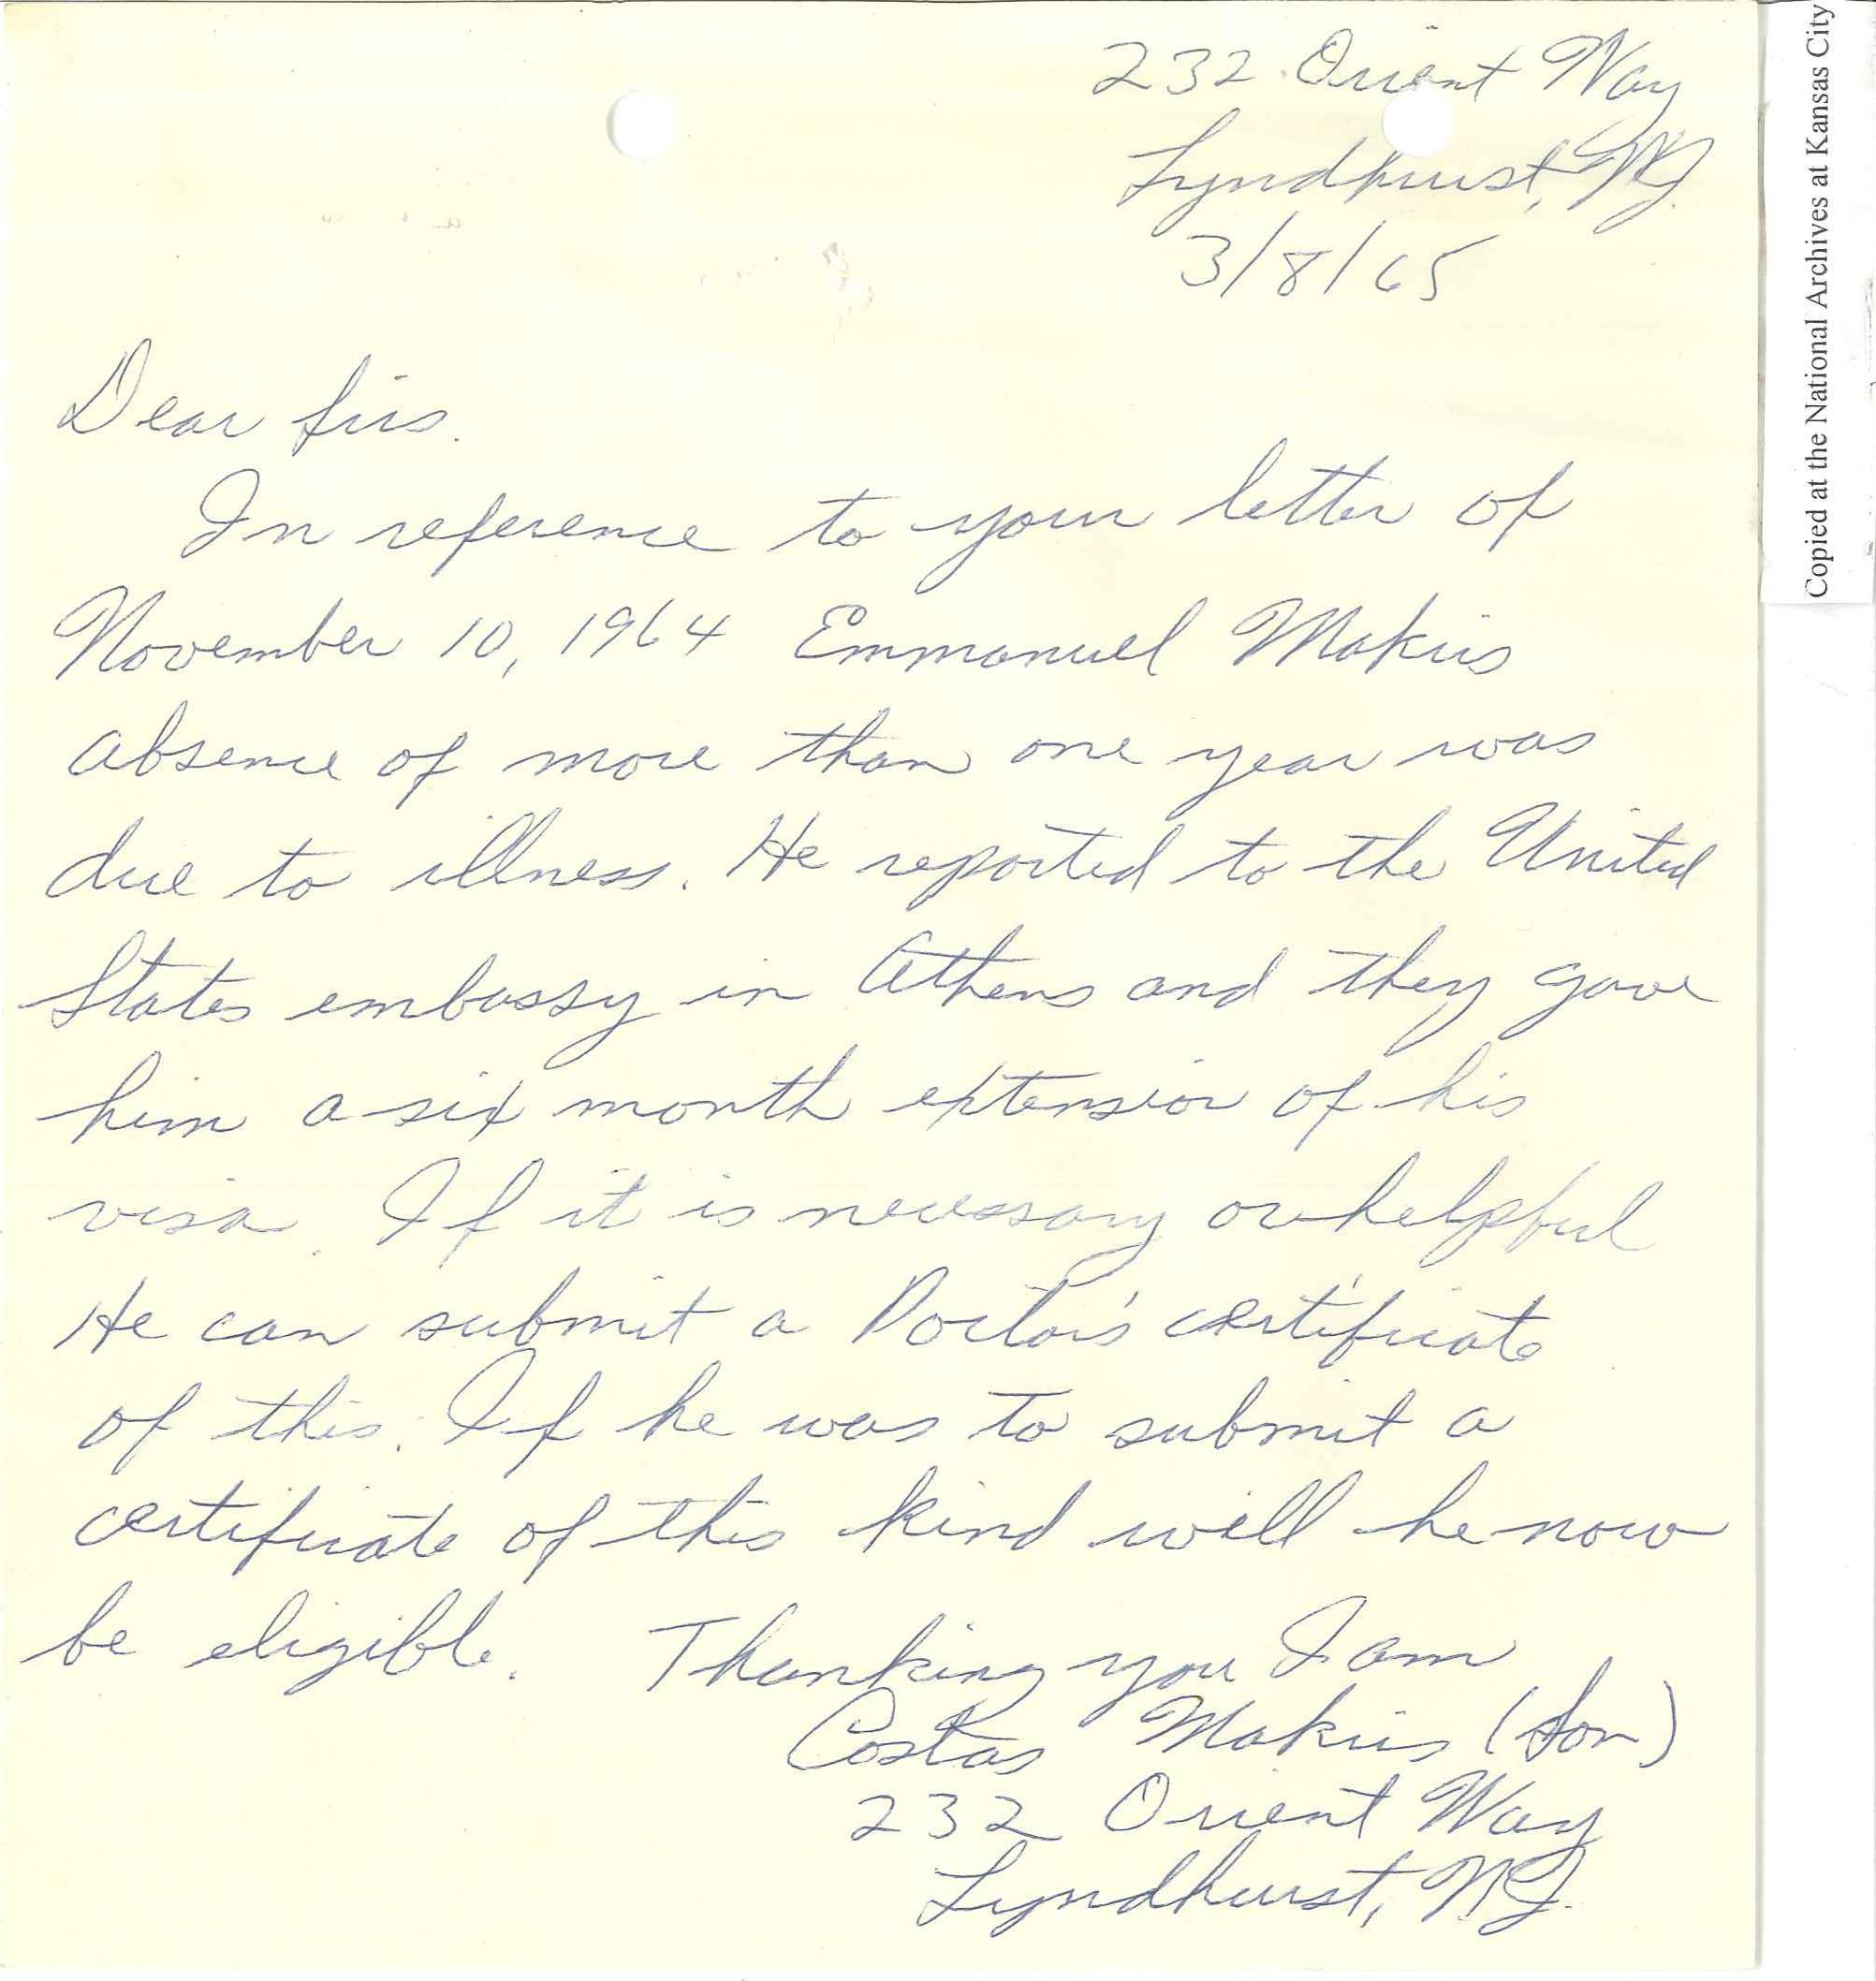 232 Orient Way
Lyndhurst, NJ.
3/8/65
Dear Sirs.
In reference to your letter of
November 10, 1964 Emmanuel Makris
absence of more than one year was
due to illness. He reported to the United
States embassy in Athens and they gave
him a six month extension of his
visa. If it is necessary or helpful
He can submit a Doctor's certificate
of this. If he was to submit a
certificate of this kind will he now
be eligible. Thanking you I am
Costas Makris (Son)
232 Orient Way
Lyndhurst, NJ.
Copied at the National Archives at Kansas City